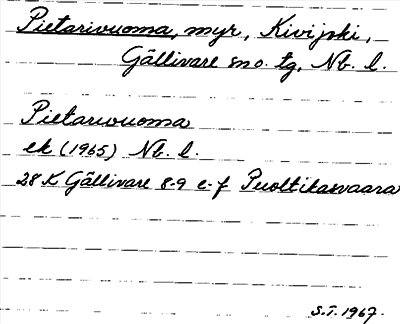 Pietarivuoma, myr, Kivijski,
Gällivare sn o. tg, Nb. l.
Pietarivuoma
ek (1965) Nb. l.
28 K Gällivare 8-9 e-f Puoltikasvaara
S.T. 1967.